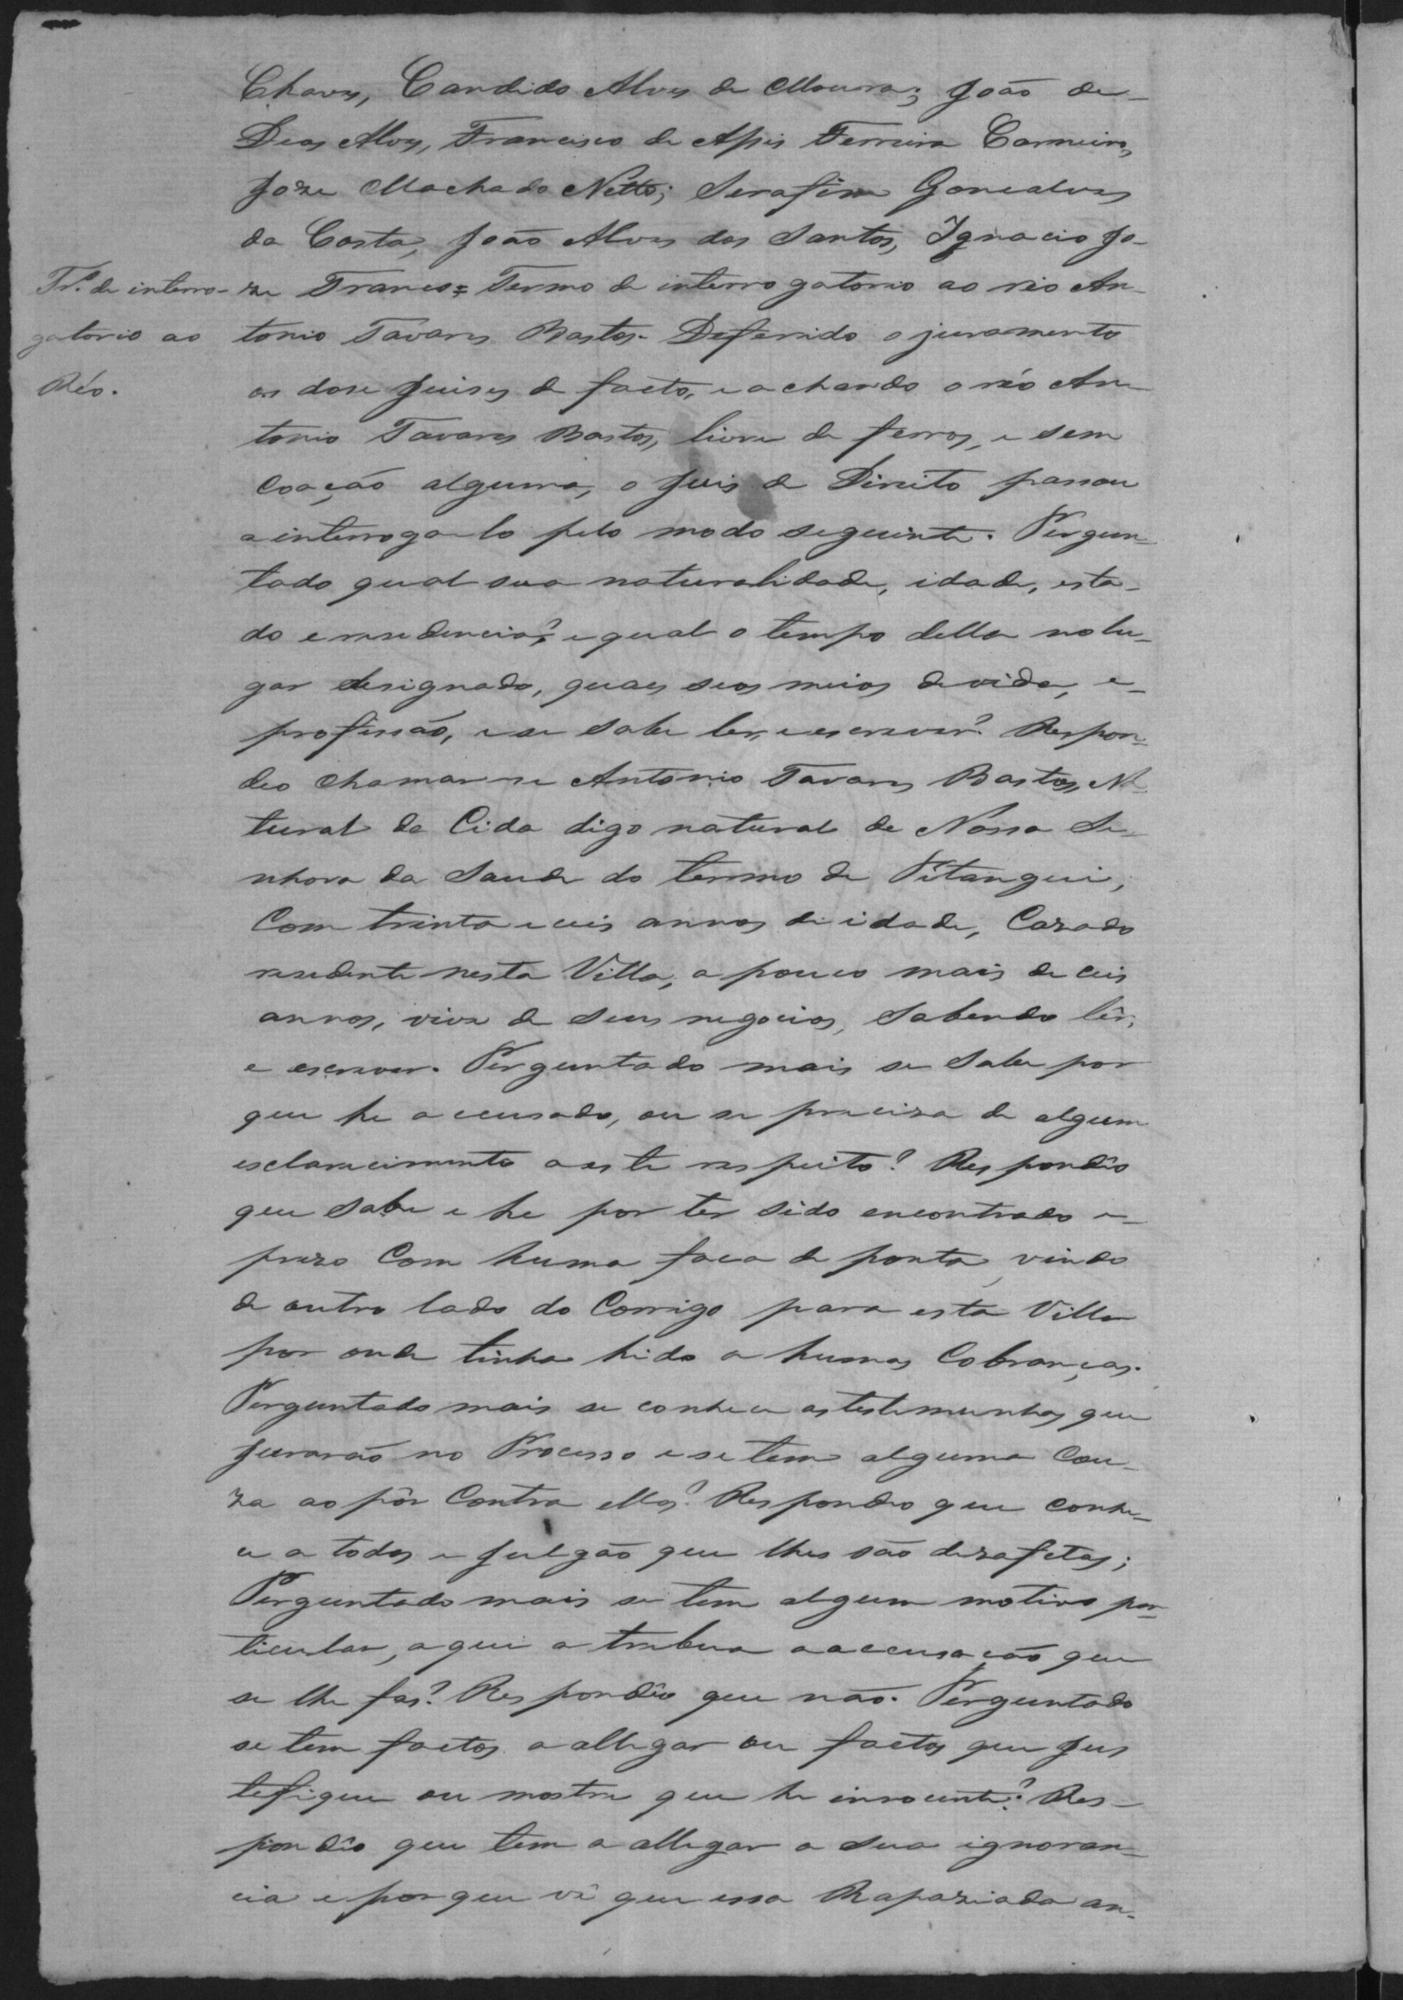 Chaves, Candido Alves de Moura; João de
Deos Alves, Francisco de Assis Ferreira Carneiro,
Joze Machado Netto; Serafim Goncalves
da Costa, João Alves dos Santos, Ignacio Jo-
Tr.º de interro-
gatorio ao
Réo.
ze Franco = Termo de interrogatorio ao reo An-
tonio Tavares Bastos. Deferido o juramento
os dose Juises de facto, e achando o réo An-
tonio Tavares Bastos, livre de ferros, e sem
coação alguma, o Juis de Direito passou
a interrogalo pelo modo seguinte. Pergun-
tado qual sua naturalidade, idade, esta-
do e residencia? e qual o tempo della no lu-
gar designado, quaes seos meios de vida, e
profissão, e se sabe ler, e escrever? Respon-
deo chamar-se Antonio Tavares Bastos, Na-
tural da Cida digo natural de Nossa Se-
nhora da Saude do termo de Pitangui,
Com trinta e ceis annos de idade, Cazado
residente nesta Villa, a pouco mais de ceis
annos, vive de seus negocios, Sabendo lêr,
e escrever. Perguntado mais se Sabe por
que he accusado, ou se preciza de algum
esclarecimento a este respeito? Respondêo
que Sabe e he por ter sido encontrado e
prezo Com huma faca de ponta, vindo
de outro lado do Corrigo para esta Villa
por onde tinha hido a humas Cobranças.
Perguntado mais se conhece as testemunhas que
jurarão no Processo e se tem alguma Cou-
za ao pôr Contra ellas? Respondeo que conhe-
ce a todas e julgão que lhes são dezafetas;
Perguntado mais se tem algum motivo par-
ticular, a que atribua a accusação que
se lhe fas? Respondêo que não. Perguntado
se tem factos a allegar ou factos que Jus
tefique ou mostre que he innocente? Res-
pondêo que tem a allegar a sua ignoran-
cia e porque vê que essa Rapaziada an-